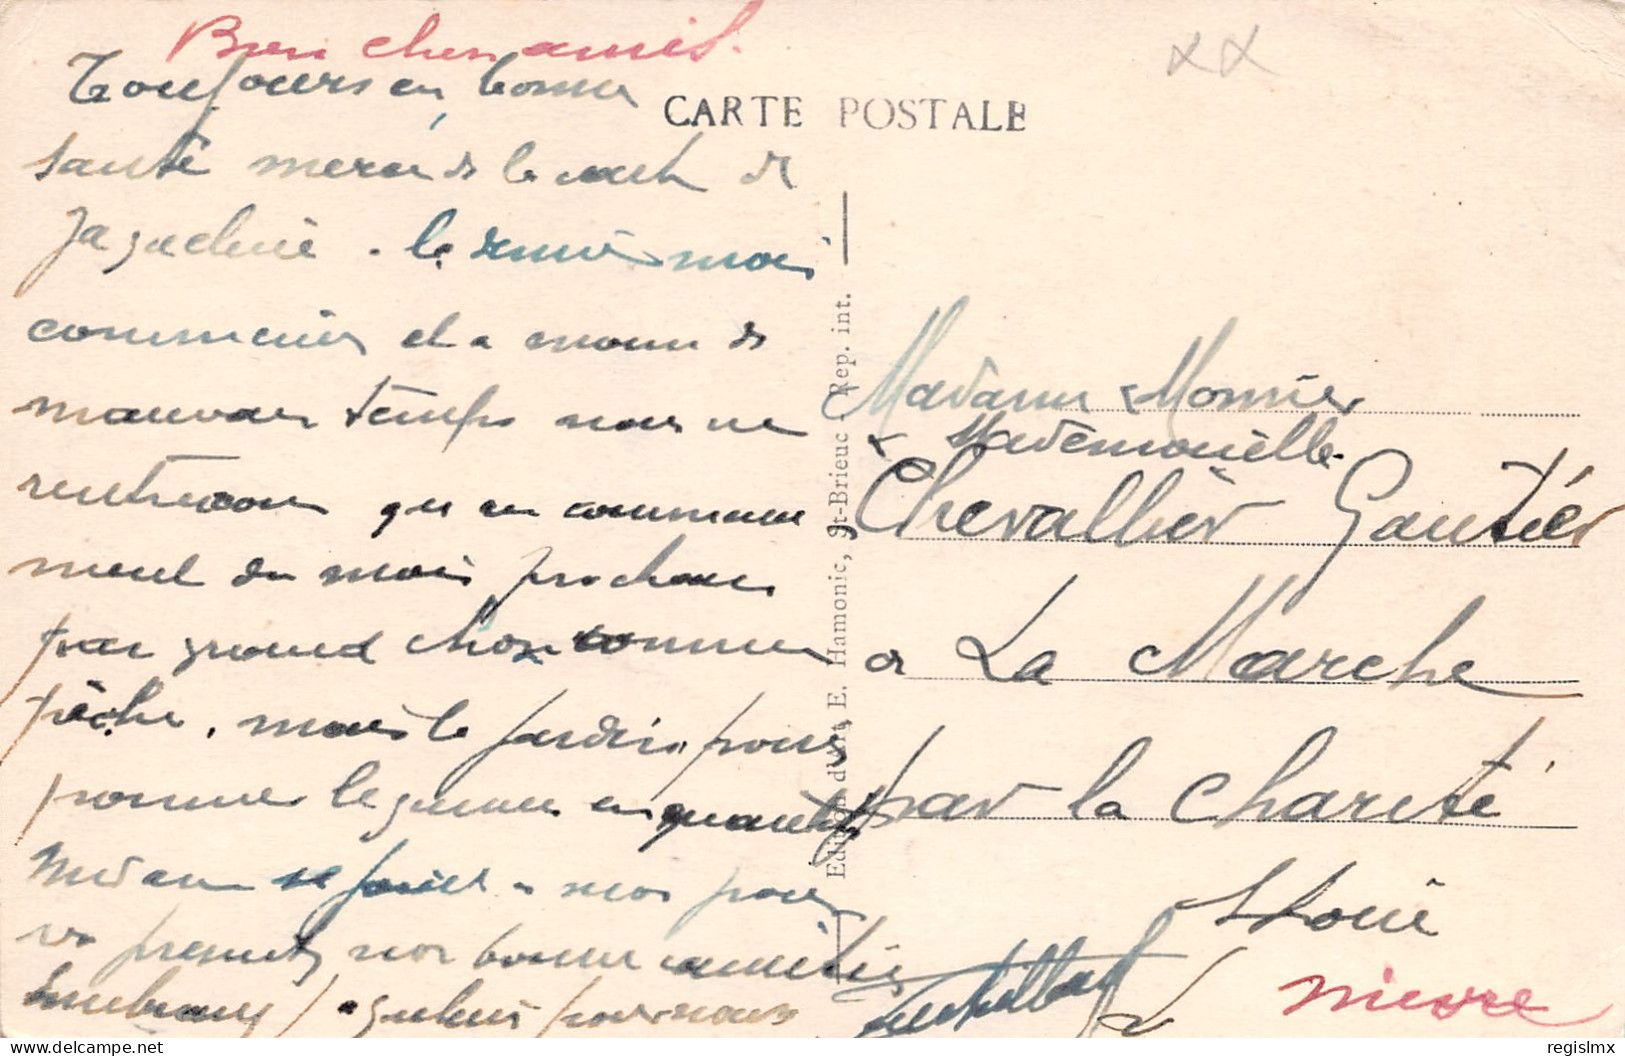 Bien chers amis.
Toujours en bonne
santé merci de la carte de
Jaqueline. le dernier mois
commencer et a moins de
mauvais temps nous ne
rentrerons qu'au commence
ment du mois prochain
pas grand chose comme
pêche, mais le jardin pour
donner legumes en quantité
nos pour
vs presenter nos bonnes amitiés
Jaqueline pour nous
CARTE POSTALE
Edition d'Art E. Hamonic, St-Brieuc - Rep. int.
Madame Monnier
& Mademoiselle
Chevallier Gautier
a La Marche
par la Charité
s Loire
Nievre
regislmx